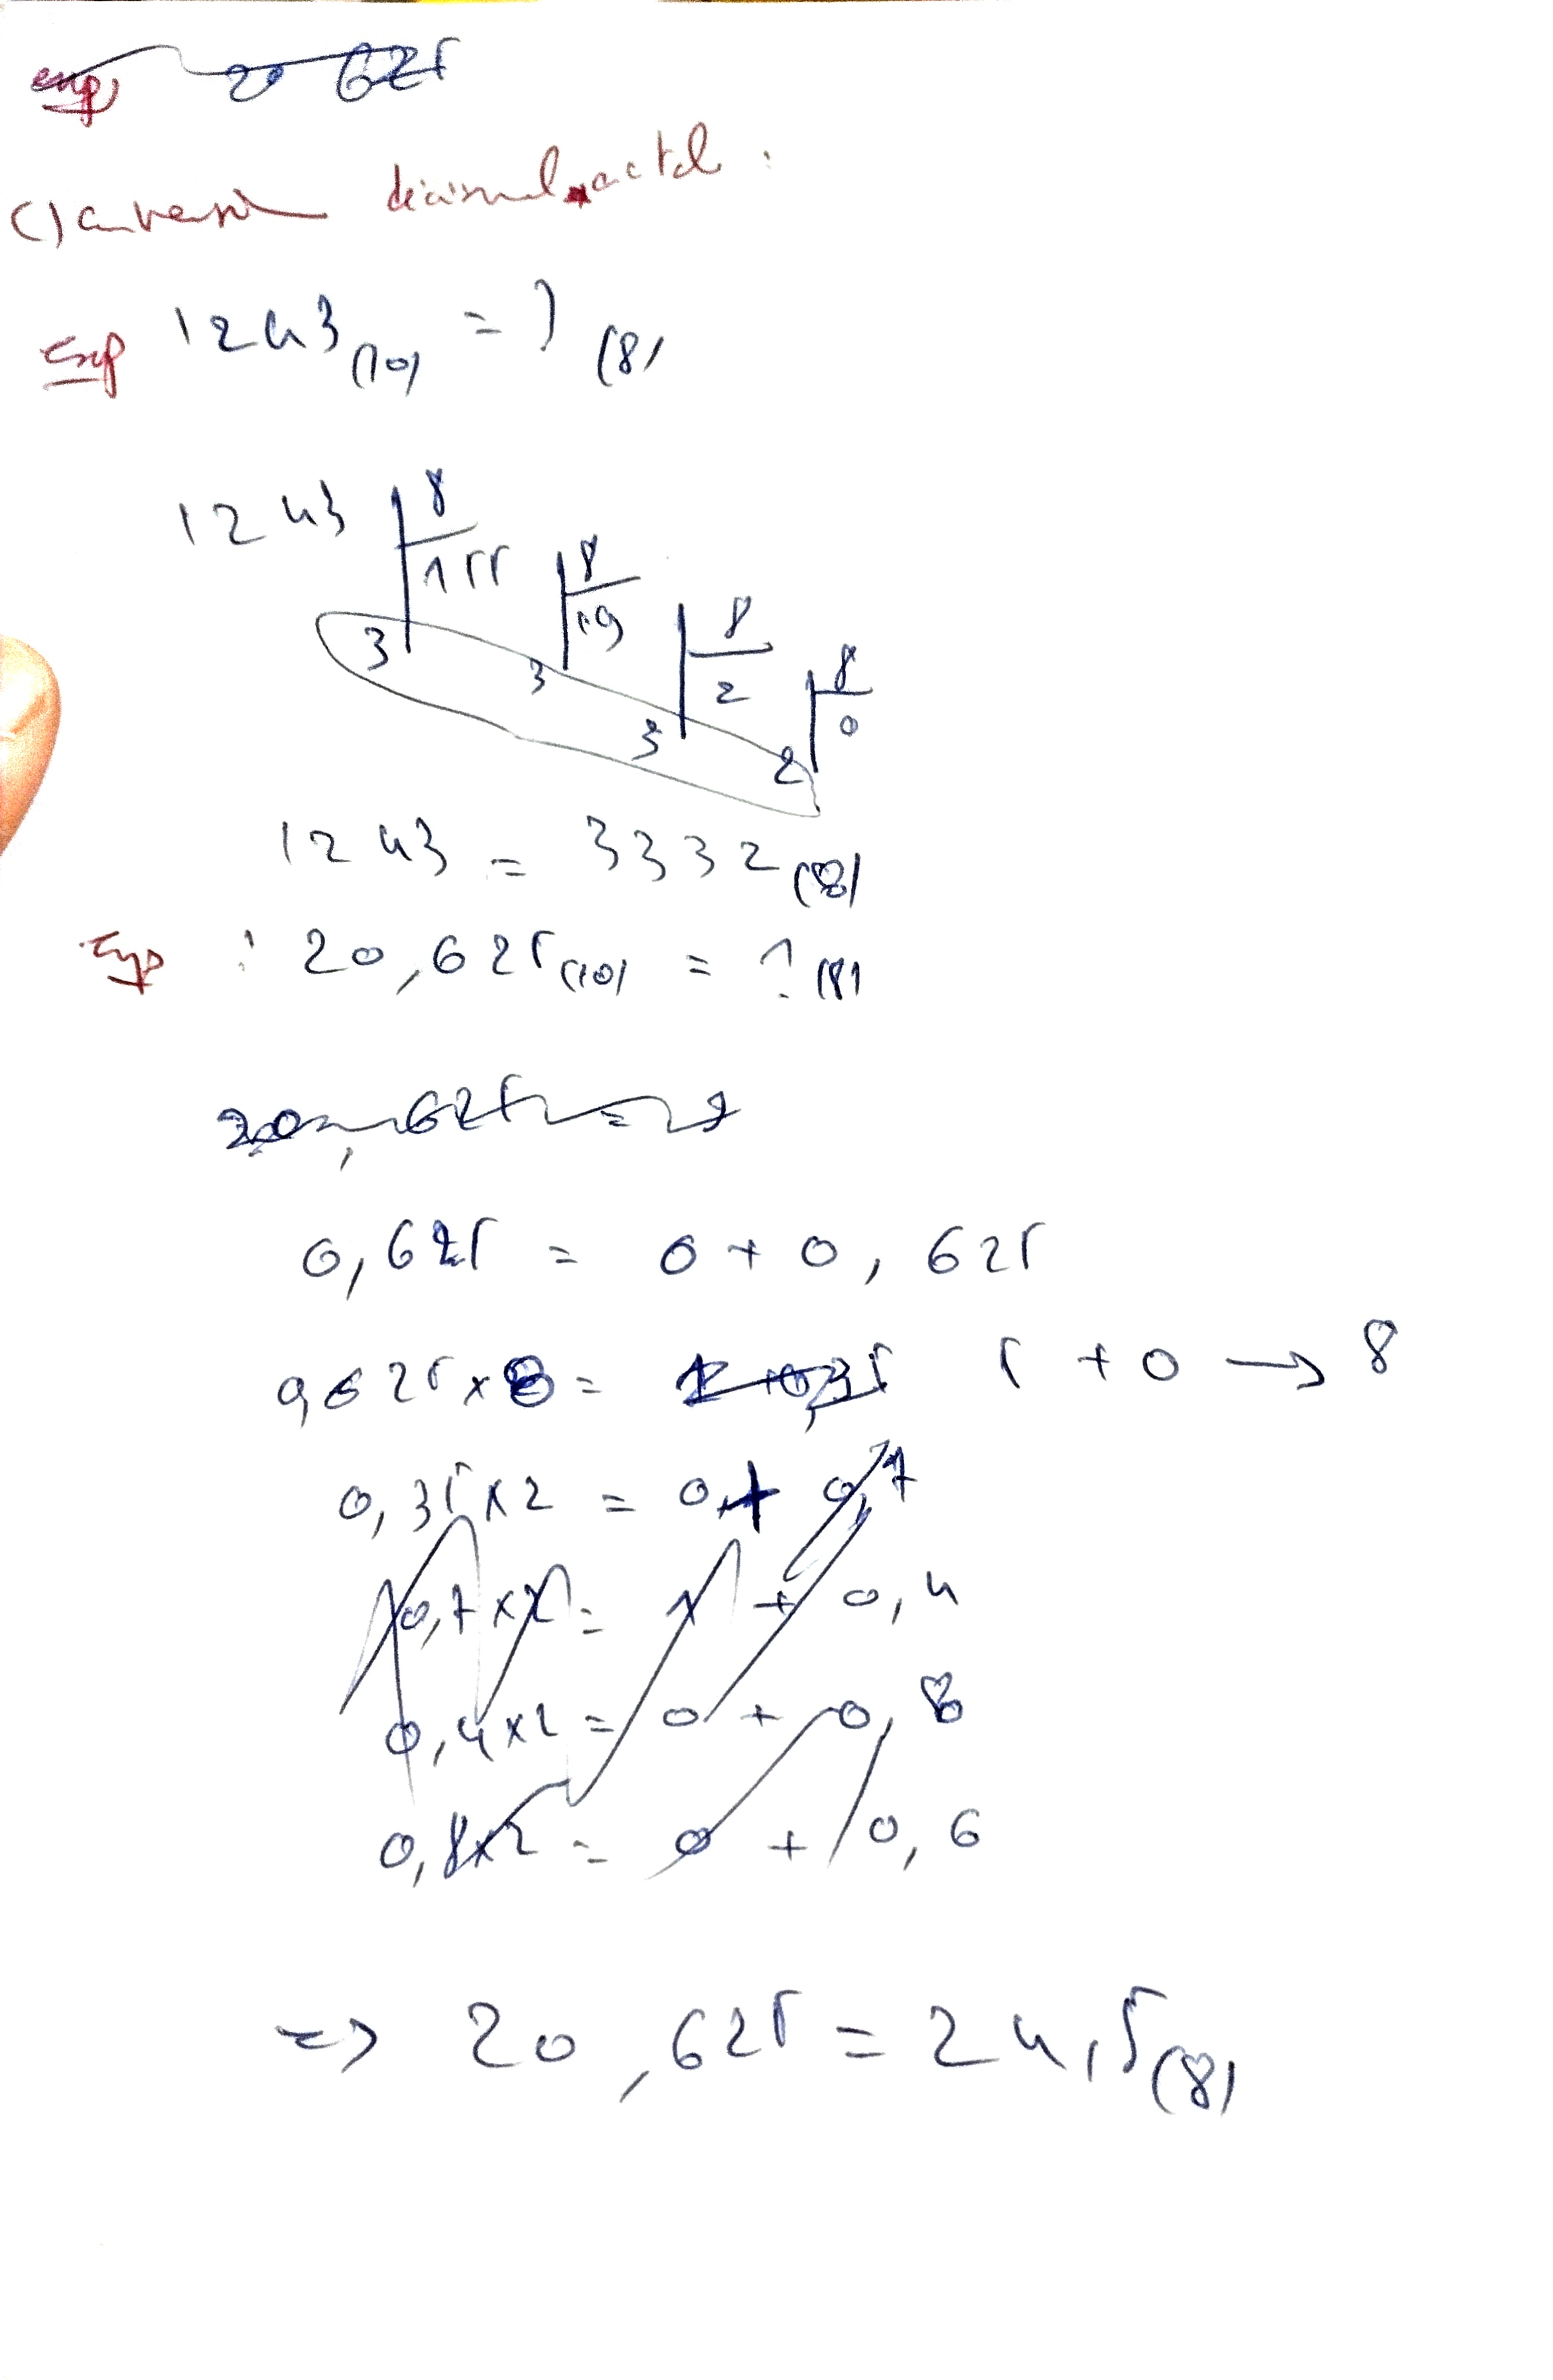 exp 20 625
c) conversion décimal octal :
Exp 1243(10) = ? (8)
1243 8
155 8
19 8
3 3 2 8
3 0
2
1243 = 3332(8)
Exp : 20,625(10) = ? (8)
20,625 =
0,625 = 0 + 0,625
0,625 x 8 = 5 + 0 → 8
0,35 x 2 = 0 + 0,7
0,7 x 2 = 1 + 0,4
0,4 x 2 = 0 + 0,8
0,8 x 2 = 0 + 0,6
=> 20,625 = 24,5(8)